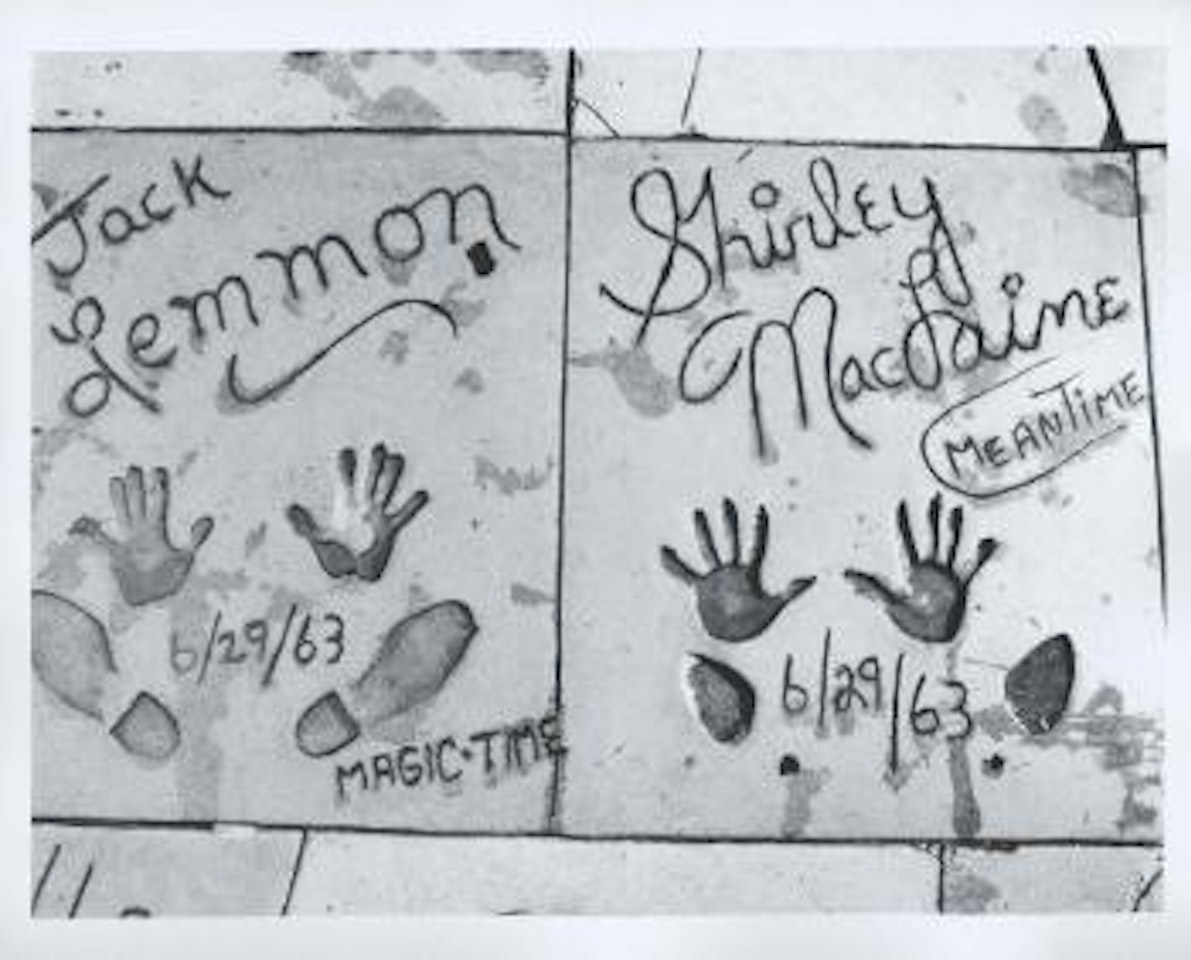 Jack
Lemmon
6/29/63
MAGIC·TIME
Shirley
MacLaine
MEANTIME
6/29/63